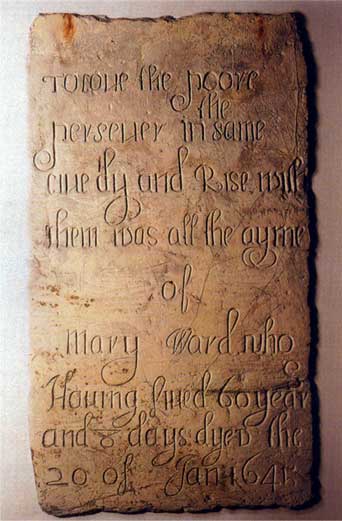 TO loue the poore
the
perseuer in same
liue dy and Rise with
them was all the ayme
of
Mary Ward who
Hauing liued 60 year
and 8 days dyed the
20 of Jan 1645